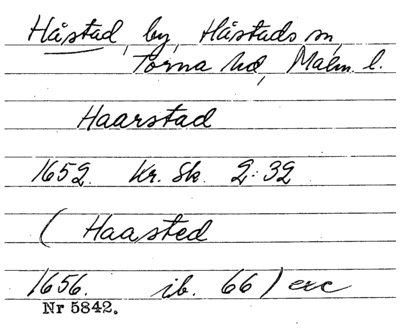 Håstad, by, Håstads sn,
Torna hd, Malm. l.
Haarstad
1652. Kr. Sk. 2:32
( Haasted
1656. ib. 66 ) exc
Nr 5842.